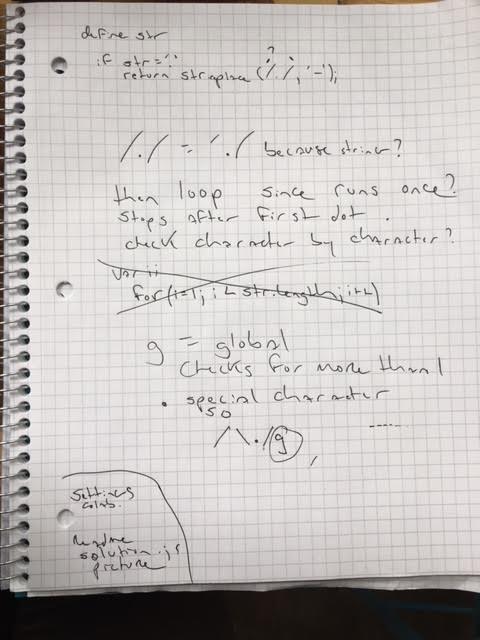 define str
if str = '.'
?
return str.replace (/./, '-');
/./ = '.'/ because string?
then loop since runs once?
stops after first dot.
check character by character?
var i;
for(i=1; i < str.length; i++)
g = global
checks for more than 1
. special character
so
/\./g
settings
collab.
readme
solution.js
picture